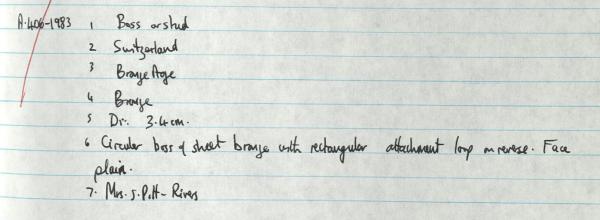 A.406-1983 1 Boss or stud
2 Switzerland
3 Bronze Age
4 Bronze
5 Dr. 3.4cm.
6 Circular boss of sheet bronze with rectangular attachment loop on reverse. Face
plain.
7. Mrs. S. Pitt-Rivers